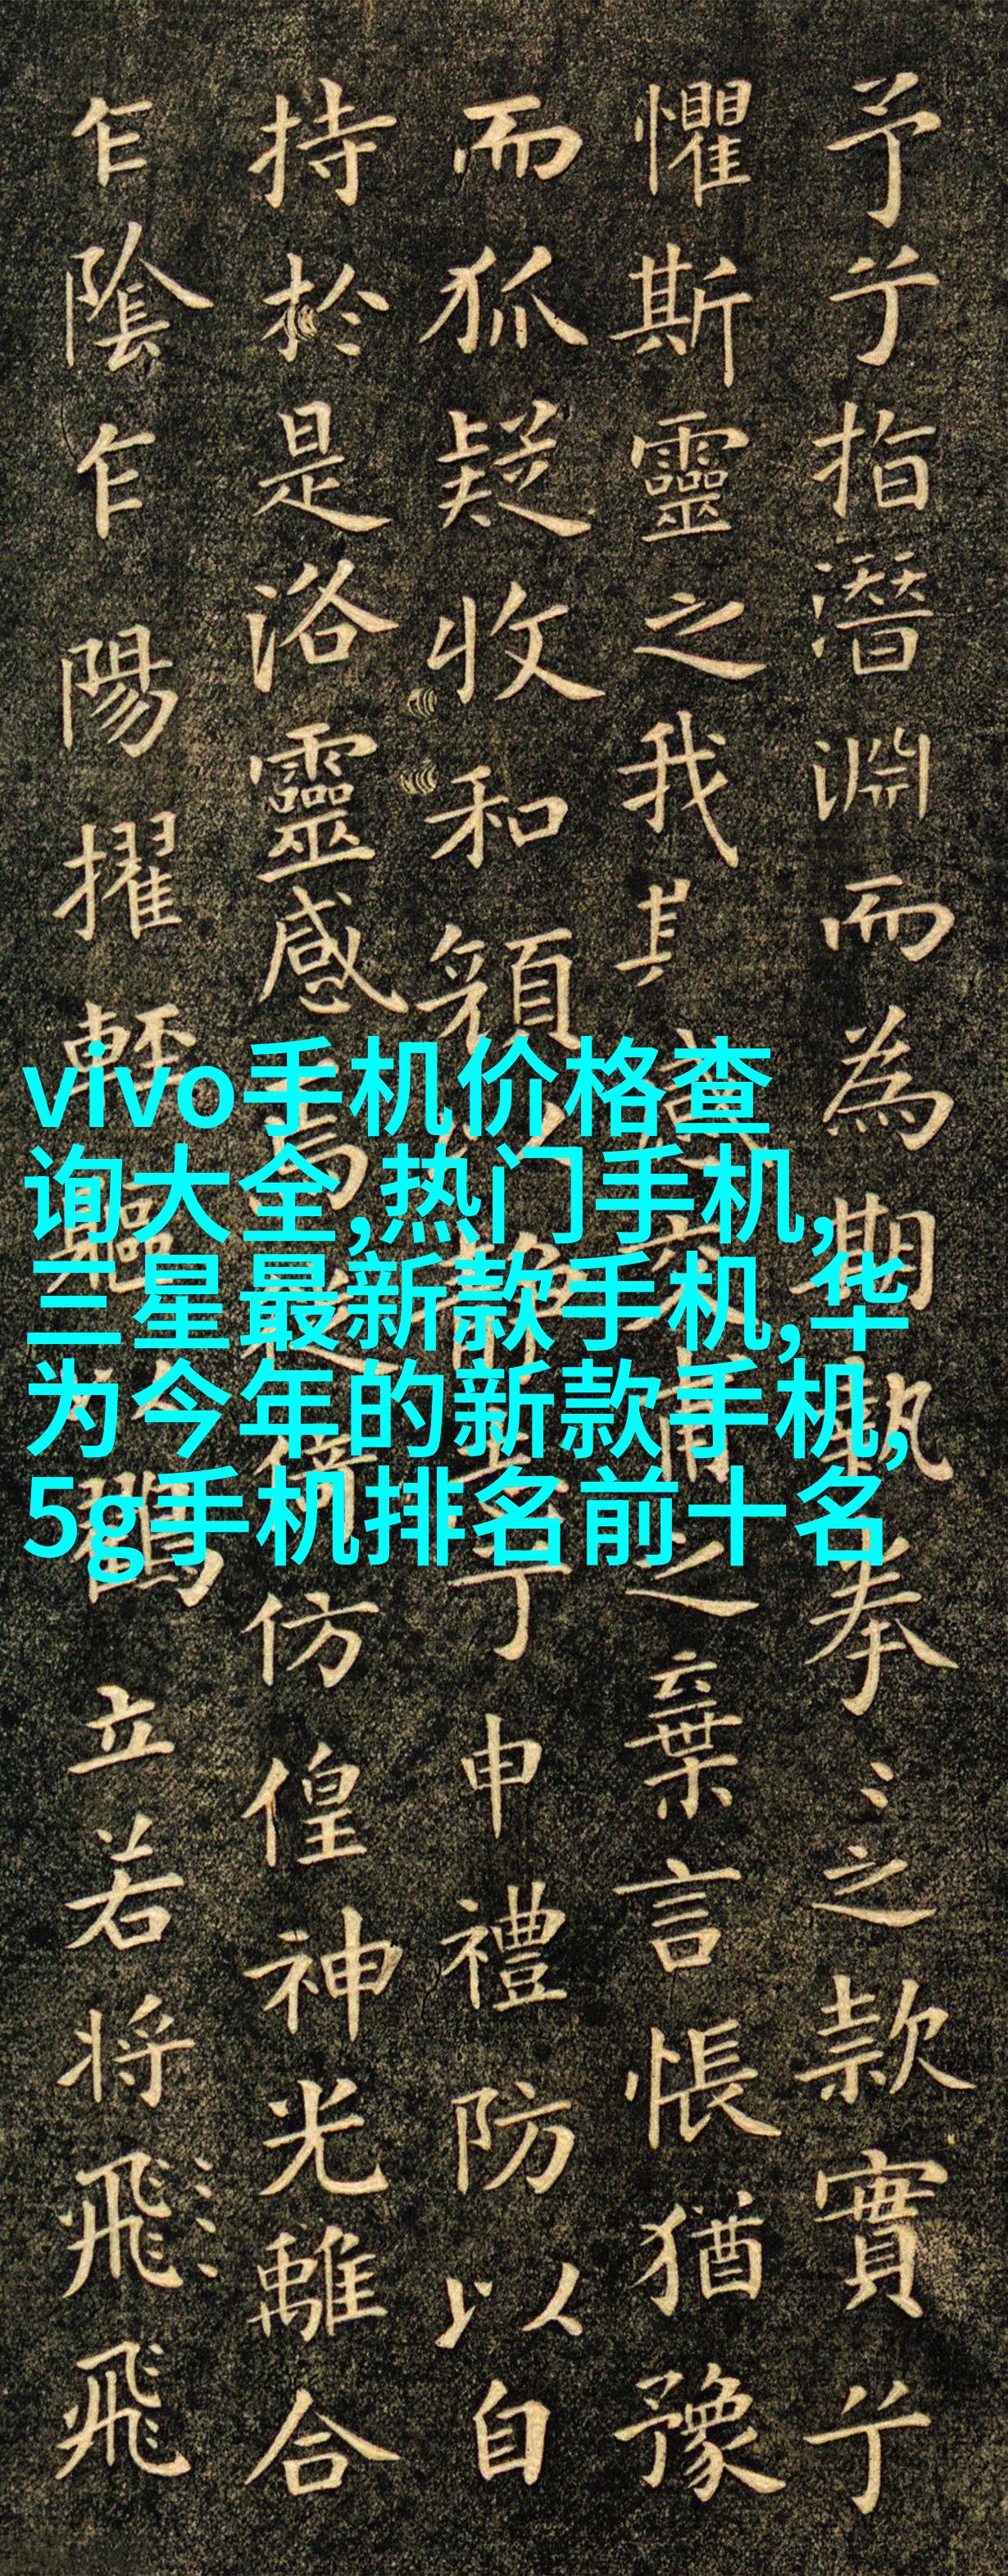 vivo手机价格查
询大全,热门手机,
三星最新款手机,华
为今年的新款手机,
5g手机排名前十名
予兮指潛淵而為期執拳之款實兮
懼斯靈之我交甫之棄言悵猶豫
而狐疑收和顏以靜申禮防以自
持於是洛靈感焉徙倚仿偟神光離合
乍陰乍陽擢輕軀鶴立若將飛飛